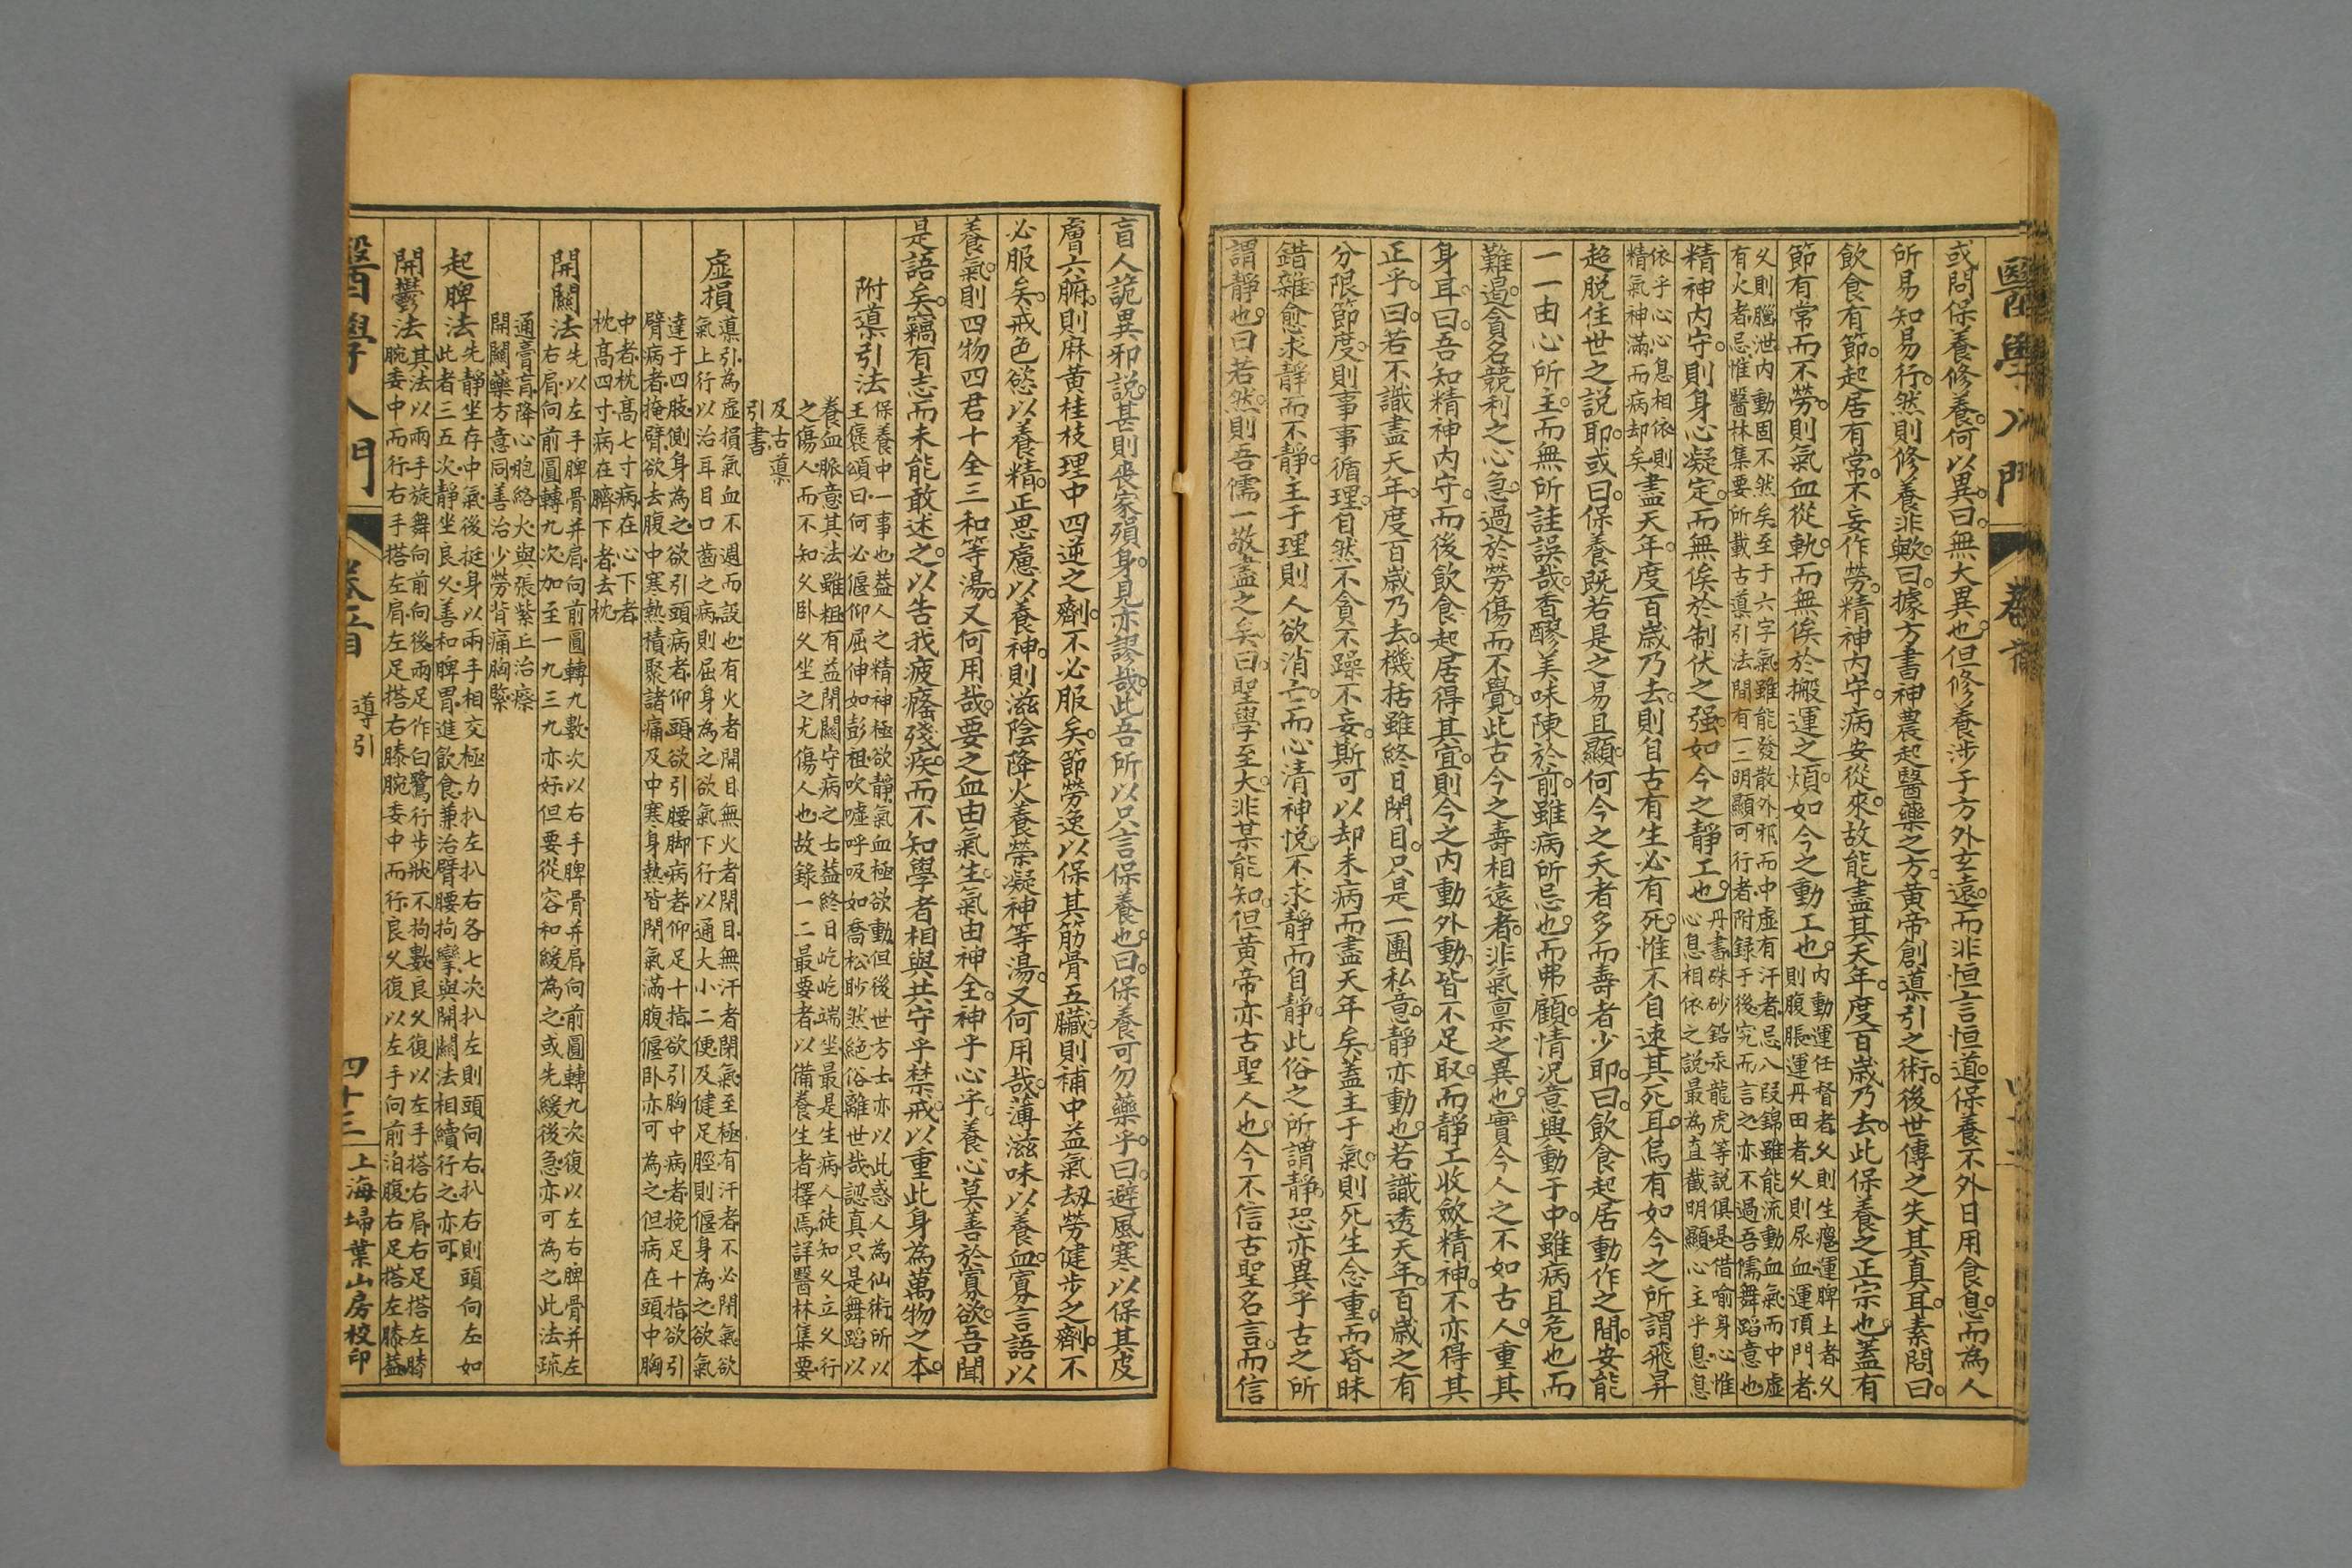 醫學入門
卷首
或問保養修養何以異曰無大異也但修養涉于方外玄遠而非恒言恒道保養不外日用食息而為人
所易知易行然則修養非歟曰據方書神農起醫藥之方黃帝創導引之術後世傳之失其真耳素問曰
飲食有節起居有常不妄作勞精神內守病安從來故能盡其天年度百歲乃去此保養之正宗也蓋有
節有常而不勞則氣血從軌而無俟於搬運之煩如今之動工也內動運任督者久則生癰運脾土者久
則腹脹運丹田者久則尿血運頂門者
久則腦泄內動固不然矣至于六字氣雖能發散外邪而中虛有汗者忌八段錦雖能流動血氣而中虛
有火者忌惟醫林集要所載古導引法間有一二明顯可行者附録于後究而言之亦不過吾儒舞蹈意也
精神內守則身心凝定而無俟於制伏之强如今之靜工也丹書硃砂鉛汞龍虎等說俱是借喻身心惟
心息相依之說最為直截明顯心主乎息息
依乎心心息相依則
精氣神滿而病却矣盡天年度百歲乃去則自古有生必有死惟不自速其死耳烏有如今之所謂飛昇
超脫住世之說耶或曰保養既若是之易且顯何今之夭者多而壽者少耶曰飲食起居動作之間安能
一一由心所主而無所詿誤哉香醪美味陳於前雖病所忌也而弗顧情况意興動于中雖病且危也而
難遏貪名競利之心急過於勞傷而不覺此古今之壽相遠者非氣禀之異也實今人之不如古人重其
身耳曰吾知精神內守而後飲食起居得其宜則今之內動外動皆不足取而靜工收歛精神不亦得其
正乎曰若不識盡天年度百歲乃去機括雖終日閉目只是一團私意靜亦動也若識透天年百歲之有
分限節度則事事循理自然不貪不躁不妄斯可以却未病而盡天年矣蓋主于氣則死生念重而昏昧
錯雜愈求靜而不靜主于理則人欲消亡而心清神悅不求靜而自靜此俗之所謂靜恐亦異乎古之所
謂靜也曰若然則吾儒一敬盡之矣曰聖學至大非某能知但黃帝亦古聖人也今不信古聖名言而信
盲人詭異邪說甚則喪家殞身見亦謬哉此吾所以只言保養也曰保養可勿藥乎曰避風寒以保其皮
膚六腑則麻黃桂枝理中四逆之劑不必服矣節勞逸以保其筋骨五臟則補中益氣劫勞健步之劑不
必服矣戒色慾以養精正思慮以養神則滋陰降火養榮凝神等湯又何用哉薄滋味以養血寡言語以
養氣則四物四君十全三和等湯又何用哉要之血由氣生氣由神全神乎心乎養心莫善於寡欲吾聞
是語矣竊有志而未能敢述之以告我疲癃殘疾而不知學者相與共守乎禁戒以重此身為萬物之本
附導引法保養中一事也蓋人之精神極欲靜氣血極欲動但後世方士亦以此惑人為仙術所以
王褒頌曰何必偃仰屈伸如彭祖吹噓呼吸如喬松眇然絶俗離世哉認真只是舞蹈以
養血脈意其法雖粗有益閉關守病之士蓋終日屹屹端坐最是生病人徒知久立久行
之傷人而不知久臥久坐之尤傷人也故録一二最要者以備養生者擇焉詳醫林集要
及古導
引書
虛損導引為虛損氣血不週而設也有火者開目無火者閉目無汗者閉氣至極有汗者不必閉氣欲
氣上行以治耳目口齒之病則屈身為之欲氣下行以通大小二便及健足脛則偃身為之欲氣
達于四肢側身為之欲引頭病者仰頭欲引腰脚病者仰足十指欲引胸中病者挽足十指欲引
臂病者掩臂欲去腹中寒熱積聚諸痛及中寒身熱皆閉氣滿腹偃臥亦可為之但病在頭中胸
中者枕高七寸病在心下者
枕高四寸病在臍下者去枕
開關法先以左手脾骨并肩向前圓轉九數次以右手脾骨并肩向前圓轉九次復以左右脾骨并左
右肩向前圓轉九次加至一九三九亦好但要從容和緩為之或先緩後急亦可為之此法疏
通膏肓降心胞絡火與張紫丘治瘵
開關藥方意同善治少勞背痛胸緊
起脾法先靜坐存中氣後挺身以兩手相交極力扒左扒右各七次扒左則頭向右扒右則頭向左如
此者三五次靜坐良久善和脾胃進飲食兼治臂腰拘攣與開關法相續行之亦可
開鬱法其法以兩手旋舞向前向後兩足作白鷺行步狀不拘數良久復以左手搭右肩右足搭左膝
腕委中而行右手搭左肩左足搭右膝腕委中而行良久復以左手向前泊腹右足搭左膝蓋
醫學入門
卷首
導引
四十三
上海埽葉山房校印